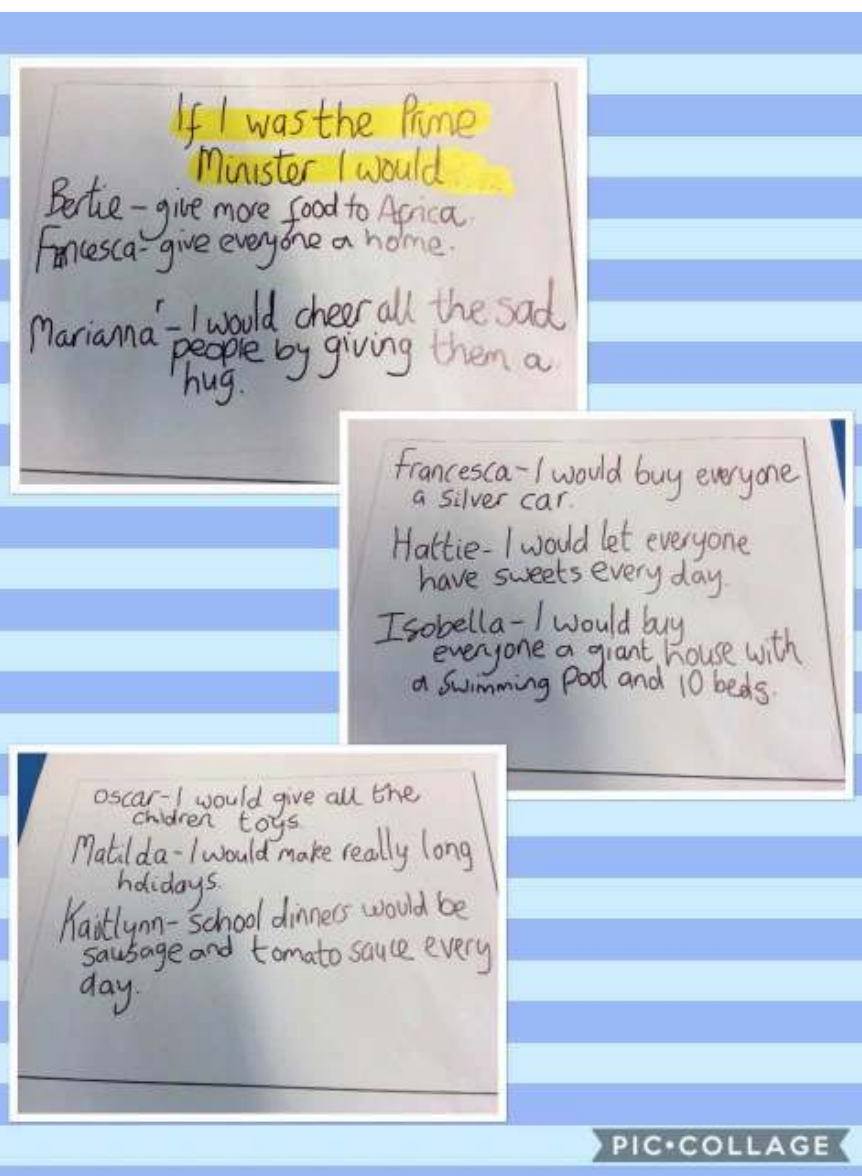 If I was the Prime
Minister I would....
Bertie - give more food to Africa.
Francesca - give everyone a home.
Marianna - I would cheer all the sad
people by giving them a
hug.
Francesca - I would buy everyone
a silver car.
Hattie - I would let everyone
have sweets every day.
Isobella - I would buy
everyone a giant house with
a swimming pool and 10 beds.
Oscar - I would give all the
children toys.
Matilda - I would make really long
holidays.
Kaitlynn - School dinners would be
sausage and tomato sauce every
day.
PIC•COLLAGE